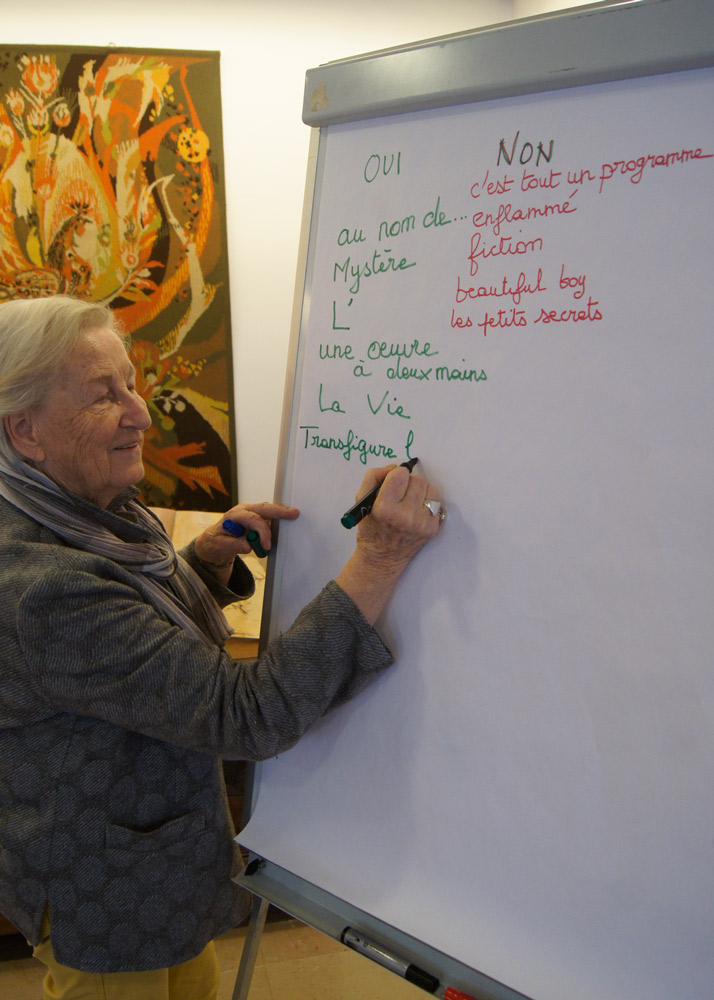 OUI
au nom de...
Mystère
L'
une œuvre
à deux mains
La Vie
Transfigure l
NON
c'est tout un programme
enflammé
fiction
beautiful boy
les petits secrets